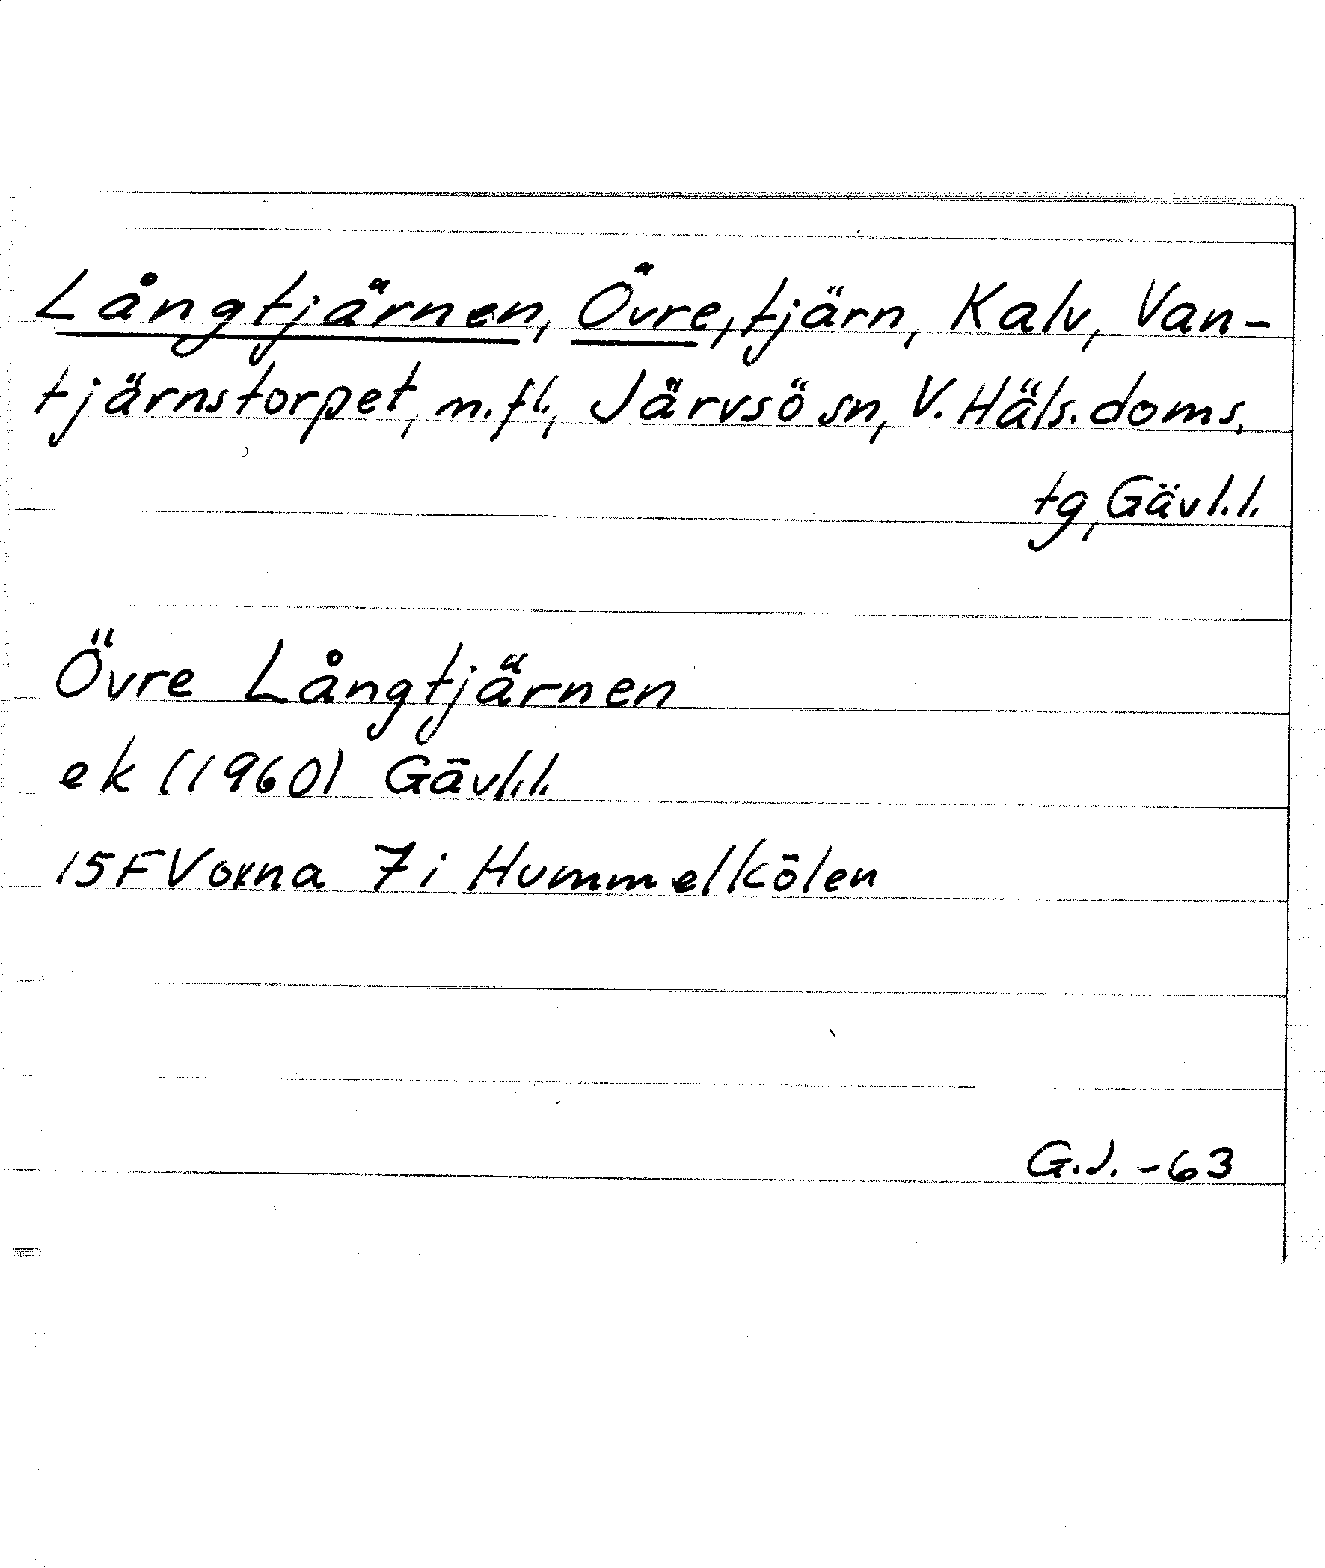 Långtjärnen, Övre, tjärn, Kalv, Van-
tjärnstorpet, m.fl., Järvsö sn, V. Häls. doms.
tg, Gävl.l.
Övre Långtjärnen
ek (1960) Gävl.l.
15F Voxna 7i Hummelkölen
G.J. -63